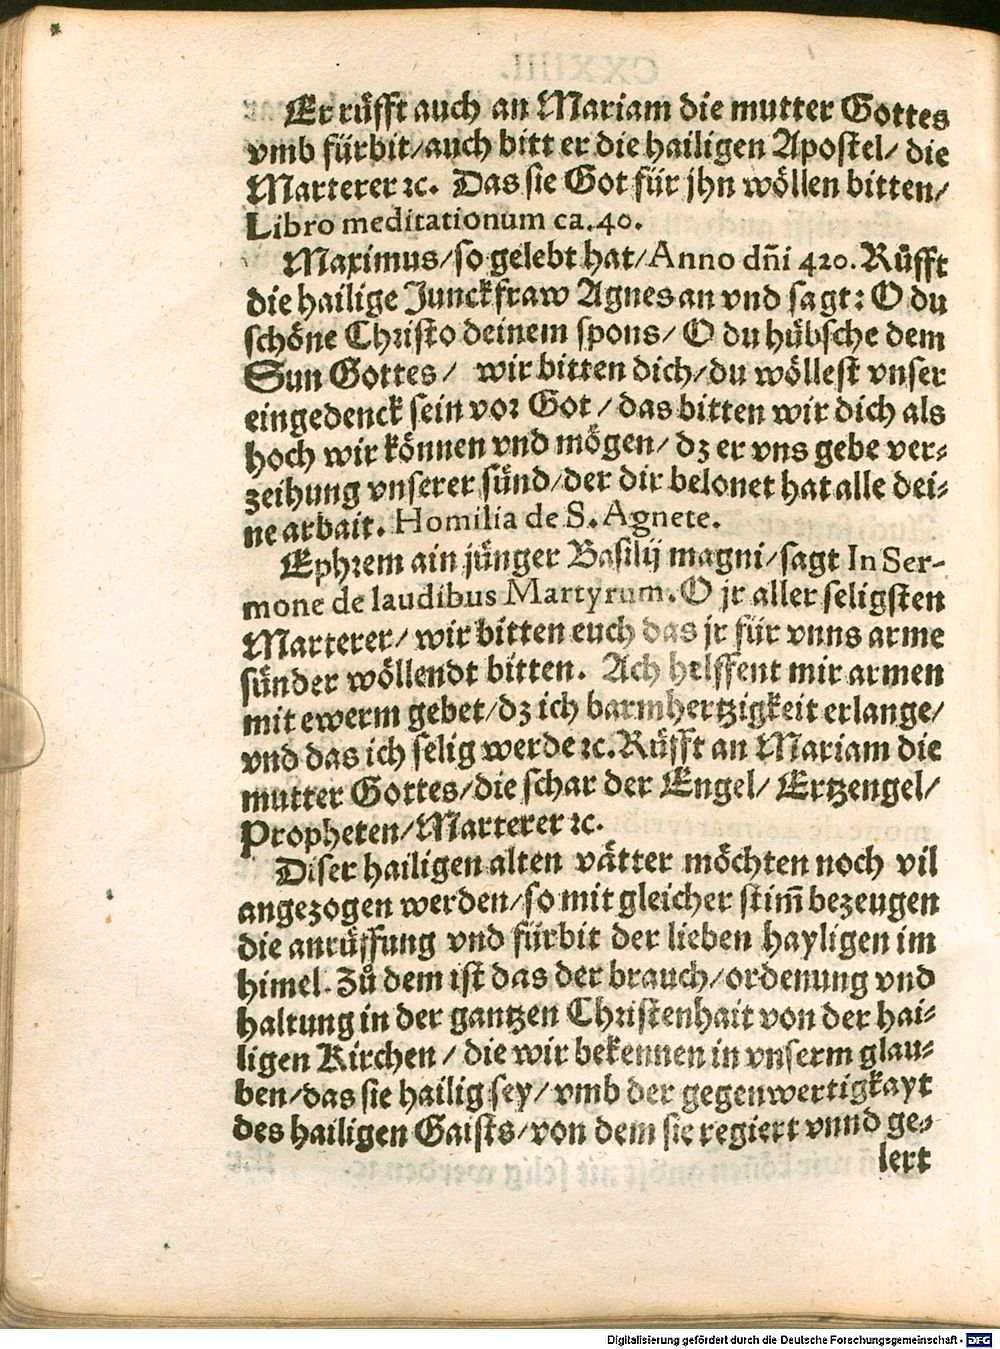 Er rüfft auch an Mariam die mutter Gottes
vmb fürbit/auch bitt er die hailigen Apostel/ die
Marterer ⁊c. Das sie Got für jhn wöllen bitten/
Libro meditationum ca.40.
Maximus/so gelebt hat/Anno dñi 420. Rüfft
die hailige Junckfraw Agnes an vnd sagt: O du
schöne Christo deinem spons/ O du hübsche dem
Sun Gottes/ wir bitten dich/du wöllest vnser
eingedenck sein vor Got/das bitten wir dich als
hoch wir können vnd mögen/ dz er vns gebe ver-
zeihung vnserer sünd/der dir belonet hat alle dei-
ne arbait. Homilia de S. Agnete.
Ephrem ain jünger Basilij magni/sagt In Ser-
mone de laudibus Martyrum. O jr aller seligsten
Marterer/ wir bitten euch das jr für vnns arme
sünder wöllendt bitten. Ach helffent mir armen
mit ewerm gebet/dz ich barmhertzigkeit erlange/
vnd das ich selig werde ⁊c. Rüfft an Mariam die
mutter Gottes/die schar der Engel/ Ertzengel/
Propheten/Marterer ⁊c.
Diser hailigen alten vätter möchten noch vil
angezogen werden/so mit gleicher stim̃ bezeugen
die anrüffung vnd fürbit der lieben hayligen im
himel. Zů dem ist das der brauch/ordenung vnd
haltung in der gantzen Christenhait von der hai-
ligen Kirchen/ die wir bekennen in vnserm glau-
ben/das sie hailig sey/ vmb der gegenwertigkayt
des hailigen Gaists/von dem sie regiert vnnd ge-
lert
Digitalisierung gefördert durch die Deutsche Forschungsgemeinschaft - DFG